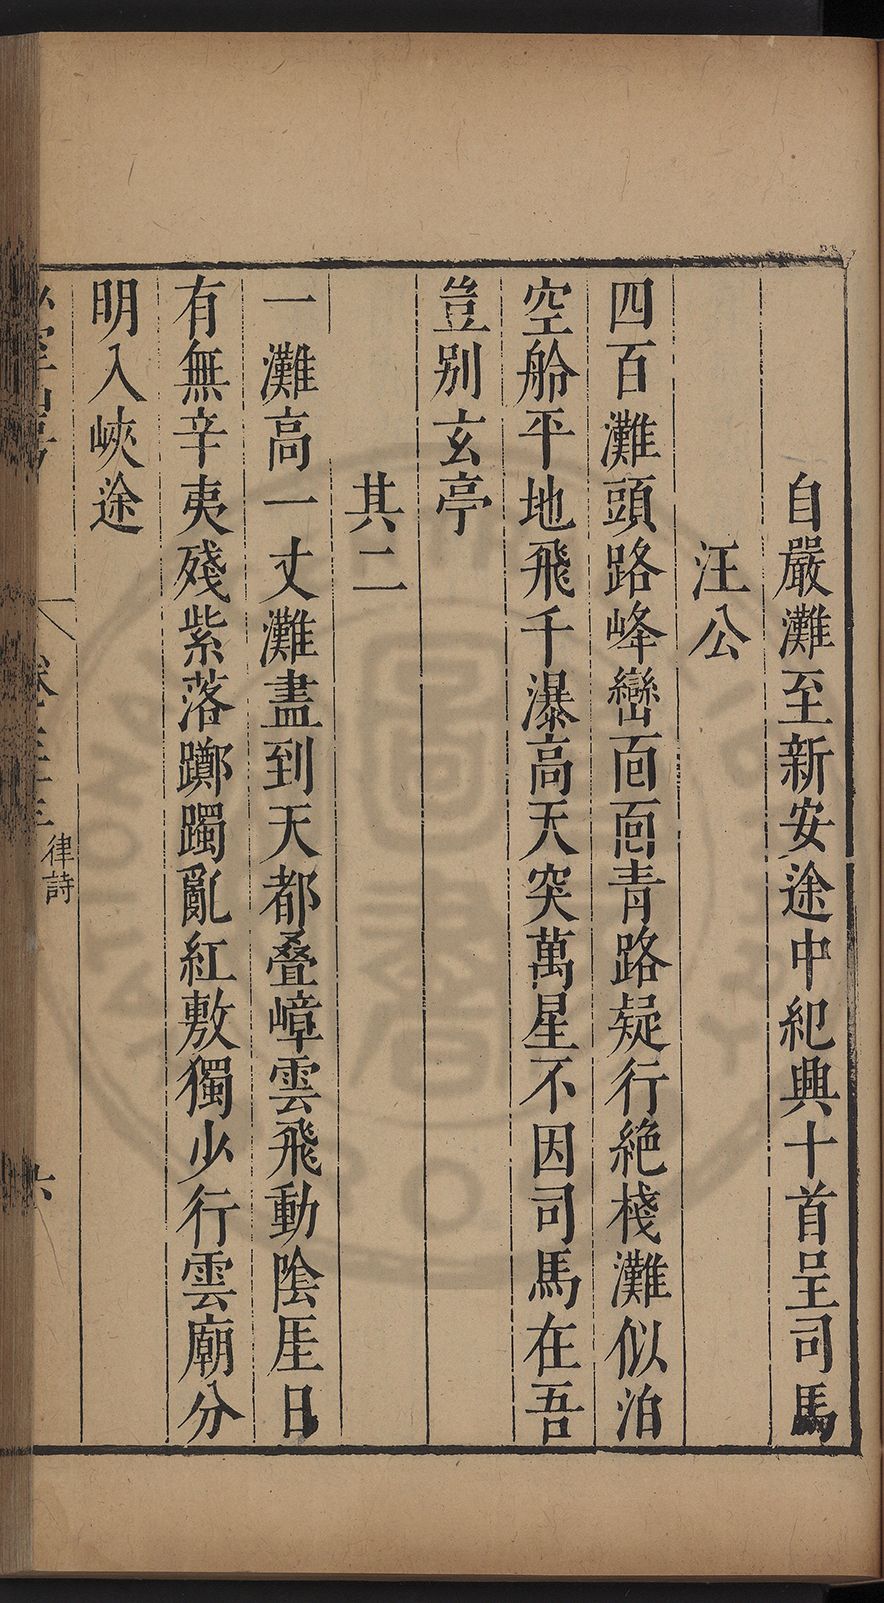 自嚴灘至新安途中紀興十首呈司馬
汪公
四百灘頭路峰巒面面青路疑行絶棧灘似泊
空船平地飛千瀑高天突萬星不因司馬在吾
豈别玄亭
其二
一灘高一丈灘盡到天都叠嶂雲飛動陰厓日
有無辛夷殘紫落躑躅亂紅敷獨少行雲廟分
明入峽途
律詩